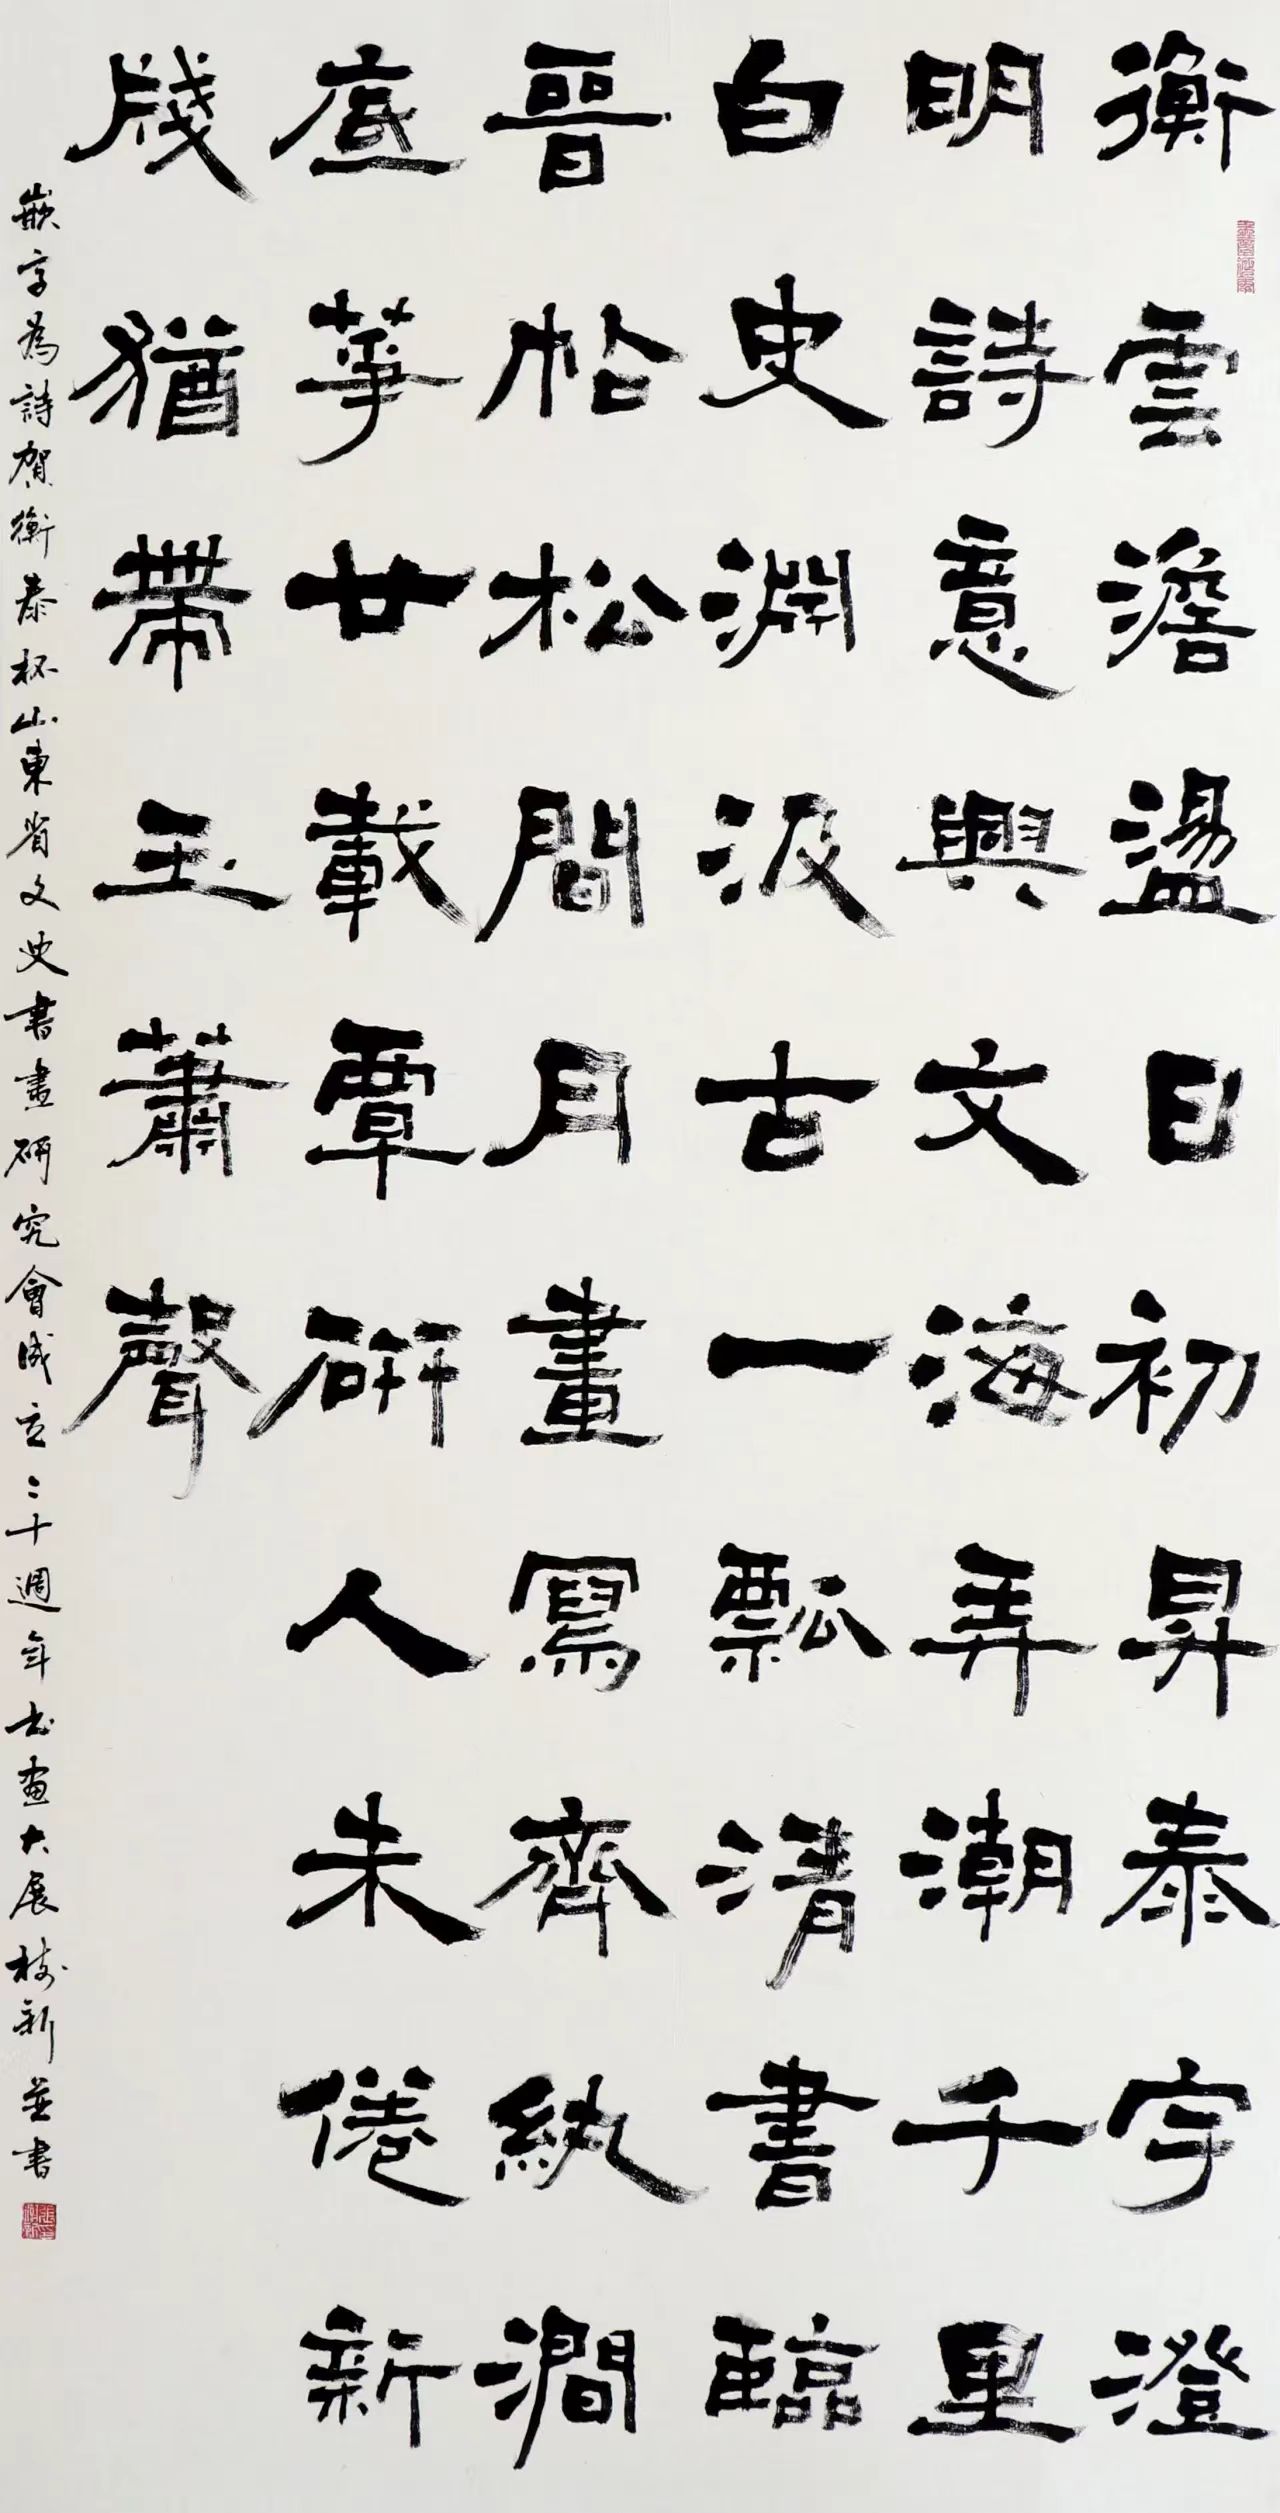 衡雲澹盪日初昇泰宇澄
明詩意興文海弄潮千里
白史淵汲古一瓢清書臨
晉帖松間月畫寫齊紈澗
底華廿載覃研人未倦新
牋猶帶玉蕭聲
嵌字為詩賀衡泰杯山東省文史書畫研究會成立二十週年书画大展树新並書